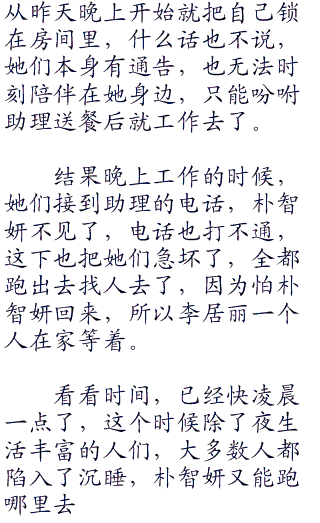 从昨天晚上开始就把自己锁
在房间里，什么话也不说，
她们本身有通告，也无法时
刻陪伴在她身边，只能吩咐
助理送餐后就工作去了。
结果晚上工作的时候，
她们接到助理的电话，朴智
妍不见了，电话也打不通，
这下也把她们急坏了，全都
跑出去找人去了，因为怕朴
智妍回来，所以李居丽一个
人在家等着。
看看时间，已经快凌晨
一点了，这个时候除了夜生
活丰富的人们，大多数人都
陷入了沉睡，朴智妍又能跑
哪里去